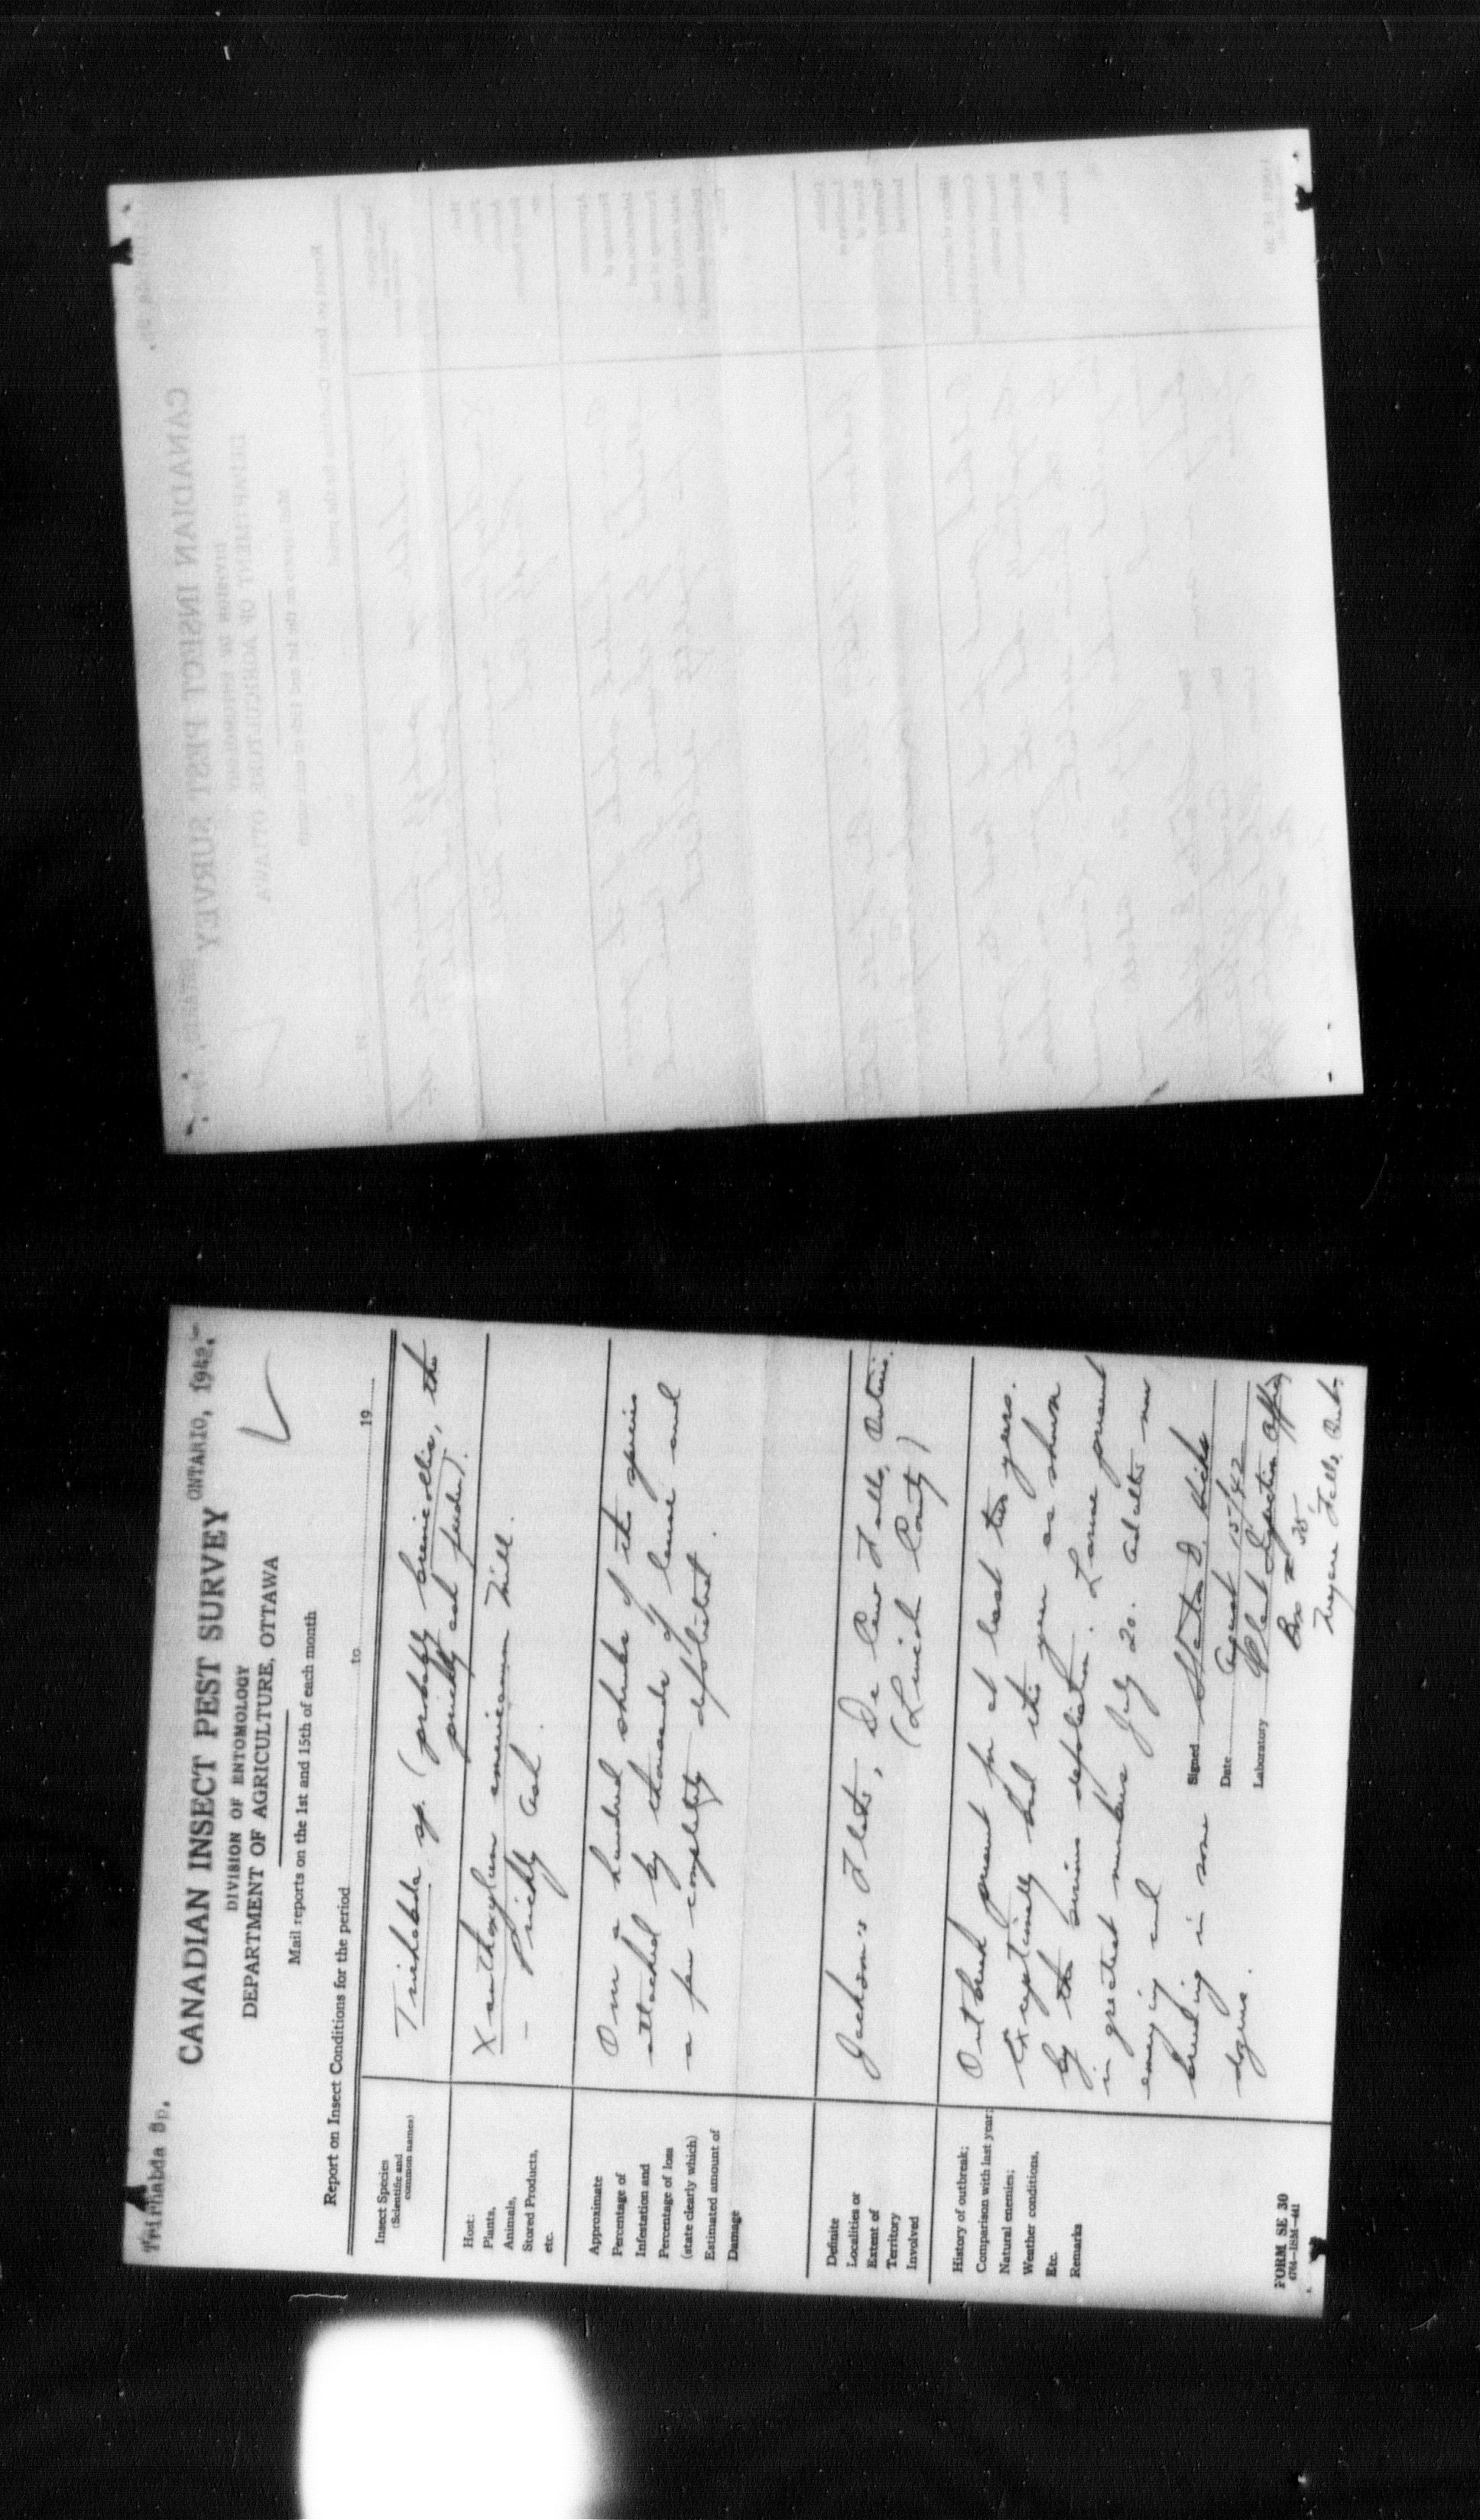 Trirhabda Sp.
ONTARIO, 1942.-
CANADIAN INSECT PEST SURVEY
DIVISION OF ENTOMOLOGY
DEPARTMENT OF AGRICULTURE, OTTAWA
Mail reports on the 1st and 15th of each month
Report on Insect Conditions for the period to 19
Insect Species
(Scientific and
common names)
Trirhabda sp. (probably brevicollis, the
prickly ash feeder).
Host:
Plants,
Animals,
Stored Products,
etc.
Xanthoxylum americanum Mill.
- Prickly ash.
Approximate
Percentage of
Infestation and
Percentage of loss
(state clearly which)
Estimated amount of
Damage
Over a hundred shrubs of this species
attacked by thousands of larvae and
a few completely defoliated.
Definite
Localities or
Extent of
Territory
Involved
Jackson's Flats, De Cew Falls, Ontario.
(Lincoln County)
History of outbreak;
Comparison with last year;
Natural enemies;
Weather conditions,
Etc.
Remarks
Outbreak present for at least two years.
Exceptionally bad this year as shown
by the serious defoliation. Larvae present
in greatest numbers July 20. Adults now
emerging and
breeding in some
degree.
Signed D. Hicks
Date August 15/42
Laboratory Plant Inspection Office
Box 35
Niagara Falls Ont.
FORM SE 30